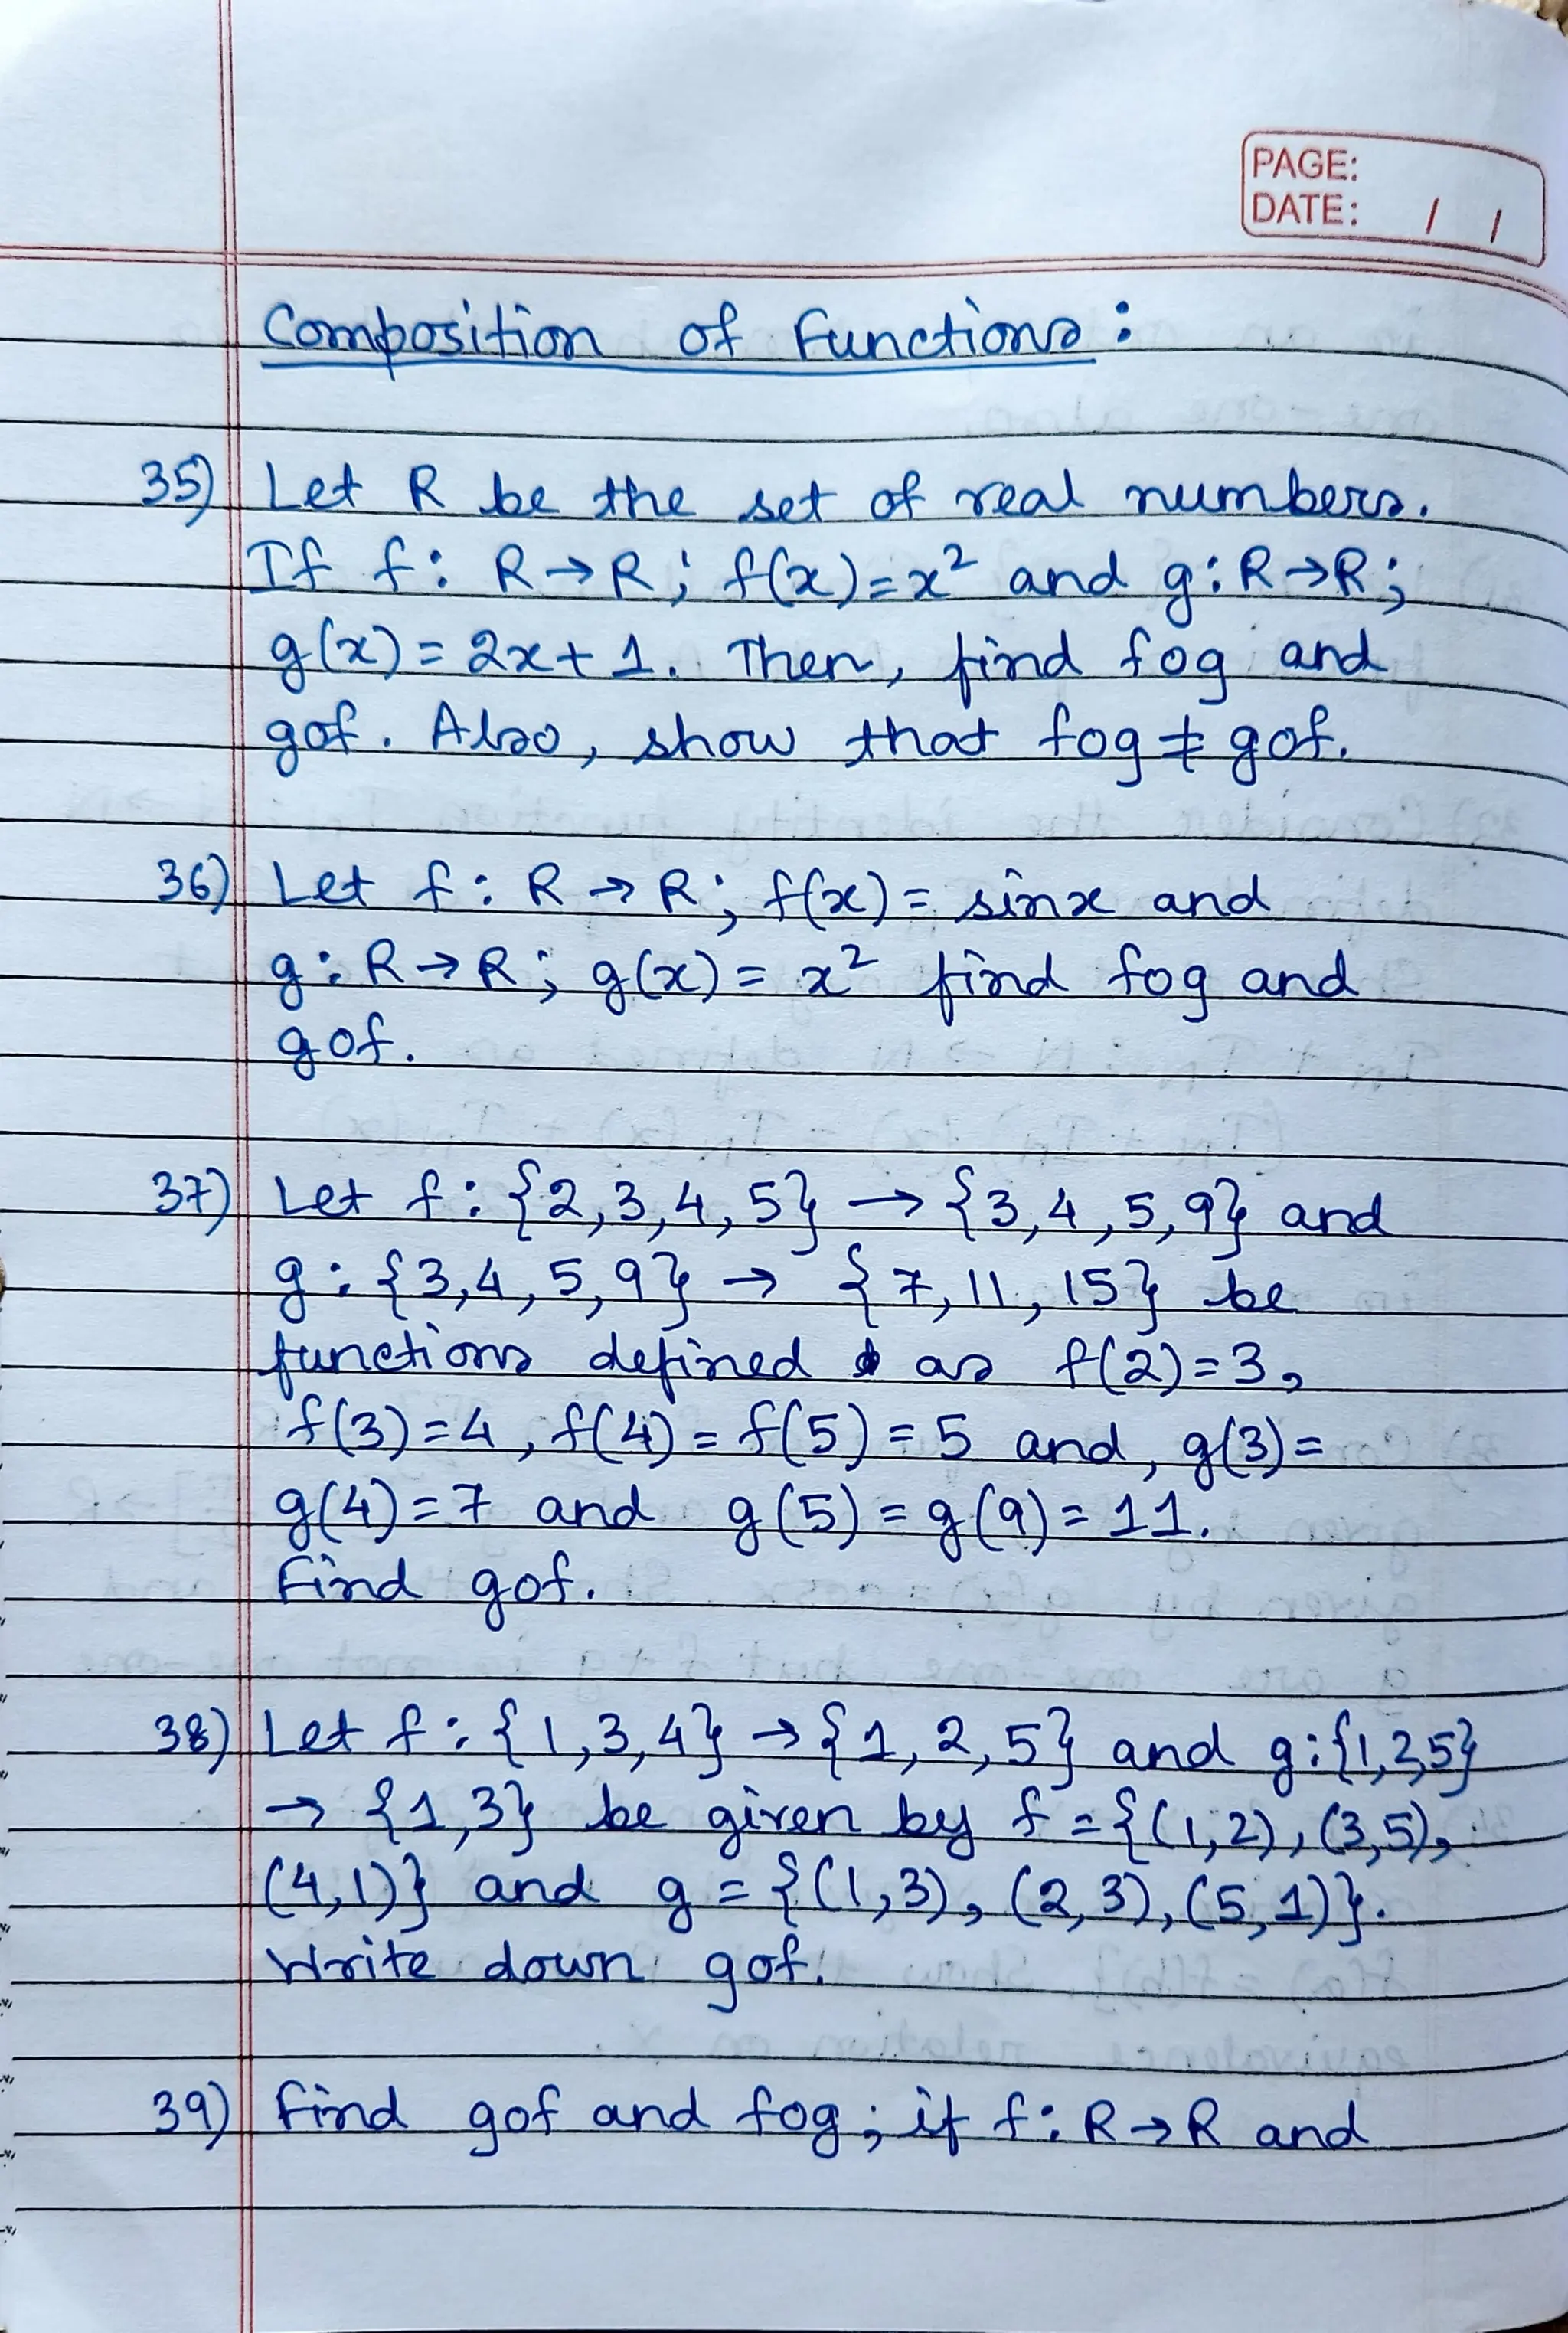 PAGE:
DATE: / /
Composition of Functions:
35) Let R be the set of real numbers.
If f: R→R; f(x)=x² and g: R→R;
g(x) = 2x+1. Then, find fog and
gof. Also, show that fog ≠ gof.
36) Let f: R → R; f(x) = sinx and
g: R→R; g(x) = x² find fog and
gof.
37) Let f: {2,3,4,5} → {3,4,5,9} and
g: {3,4,5,9} → {7,11,15} be
functions defined as f(2)=3,
f(3)=4, f(4)=f(5)=5 and, g(3)=
g(4)=7 and g(5)=g(9)=11.
Find gof.
38) Let f: {1,3,4} → {1,2,5} and g:{1,2,5}
→ {1,3} be given by f = {(1,2), (3,5),
(4,1)} and g = {(1,3), (2,3), (5,1)}.
Write down gof.
39) Find gof and fog; if f: R→R and